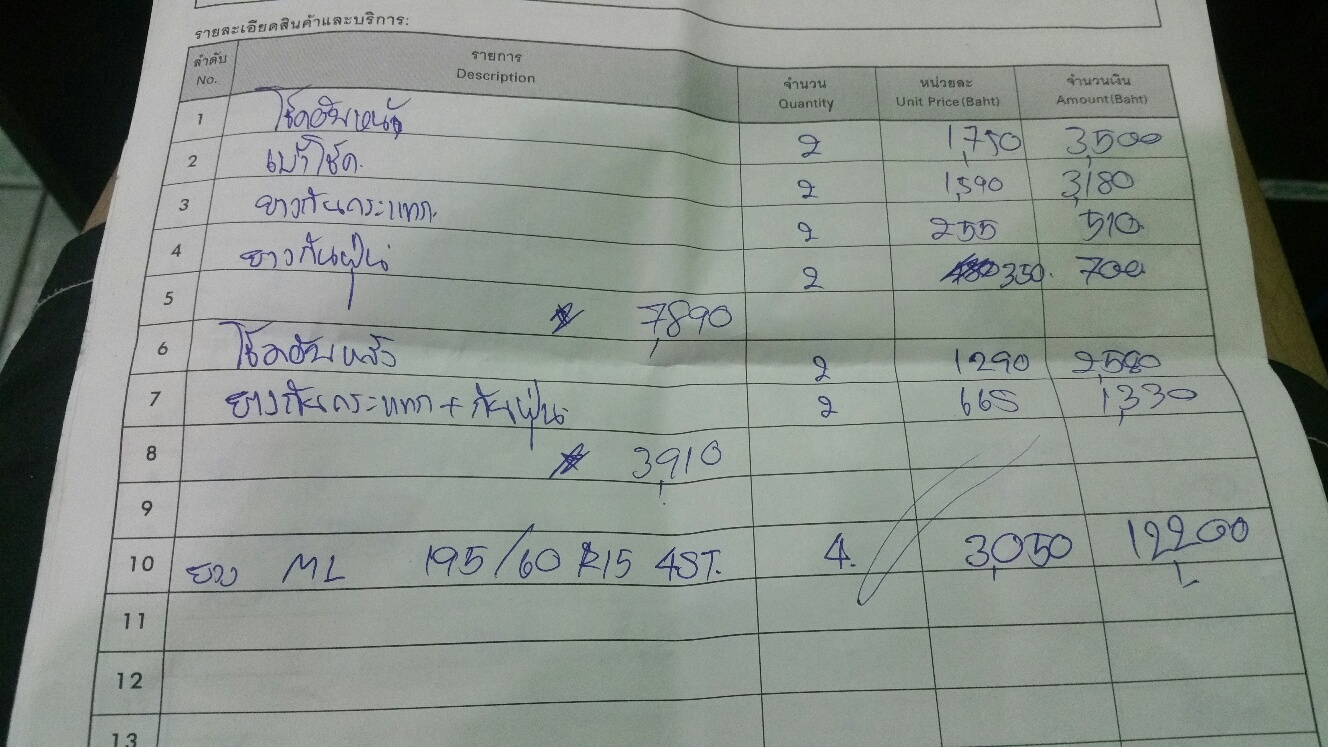 รายละเอียดสินค้าและบริการ:
ลำดับ No. รายการ Description จำนวน Quantity หน่วยละ Unit Price(Baht) จำนวนเงิน Amount(Baht)
1 โช้คอัพหน้า 2 1,750 3,500
2 เบ้าโช้ค. 2 1,590 3,180
3 ยางกันกระแทก. 2 255 510
4 ยางกันฝุ่น 2 350. 700
5 7,890
6 โช้คอัพหลัง 2 1290 2,580
7 ยางกันกระแทก + กันฝุ่น 2 665 1,330
8 3,910
9
10 ยาง ML 195/60 R15 4ST. 4. 3,050 12,200
11
12
13